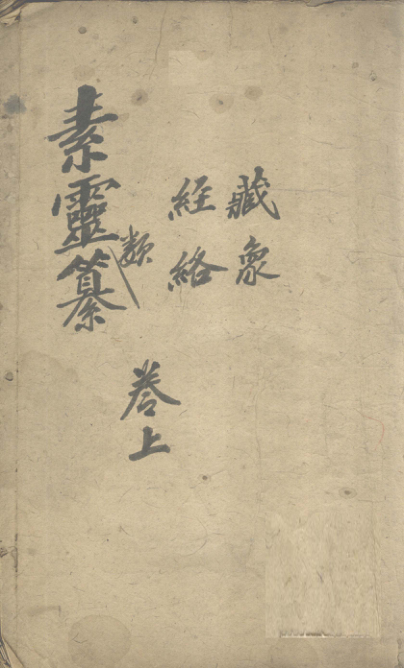 藏象
經絡
素靈類纂
卷上